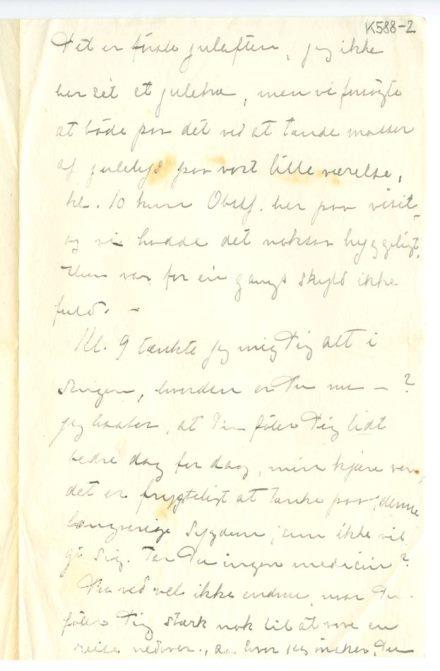 K588-2
Det er første juleaften, jeg ikke
har set et juletræ, men vi forsøgte
at bøde paa det ved at tænde masser
af julelys paa vort lille værelse,
kl. 10 kom Obstf. her paa visit,
og vi hadde det noksaa hyggeligt.
Han var for én gangs skyld ikke
fuld. -
Kl. 9 tænkte jeg mig Dig alt i
sengen, hvordan er Du nu - ?
jeg haaber, at Du føler Dig lidt
bedre dag for dag, min kjære ven,
det er frygteligt at tænke paa, denne
langvarige sygdom, som ikke vil
gi sig. Tar Du ingen medicin?
Du ved vel ikke endnu, naar Du
føler Dig stærk nok til at vove en
reise nedover, aa hvor jeg ønsker, Du